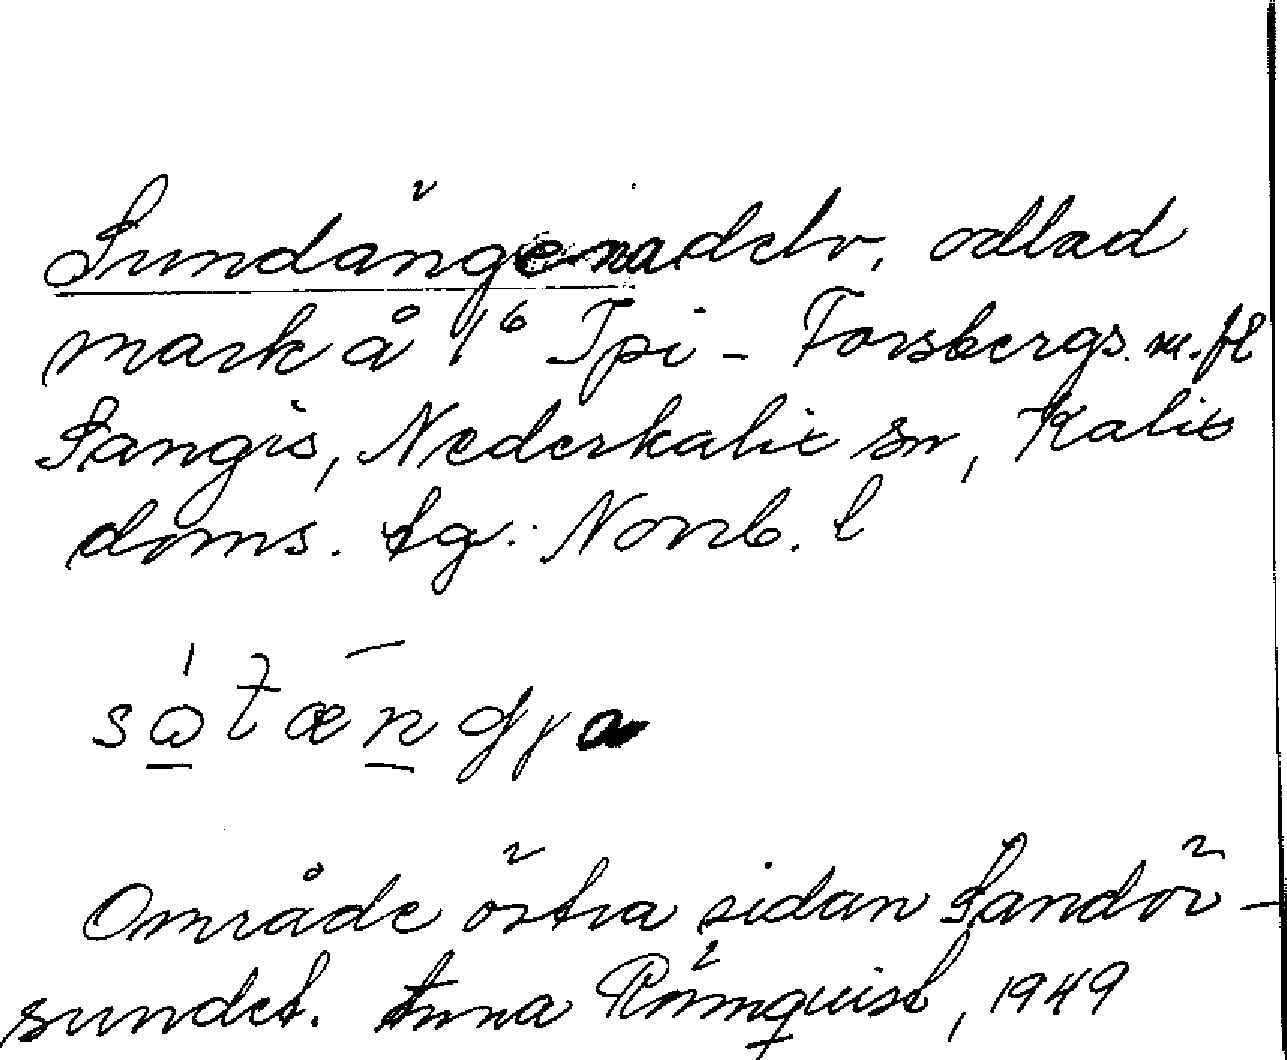 Sundängena delv, odlad
mark å 1⁶ Ipi - Forsbergs. m. fl
Sangis, Nederkalix sn, Kalix
doms. tg. Norrb. l
Område östra sidan Sandö-
sundet. Anna Römquist, 1949